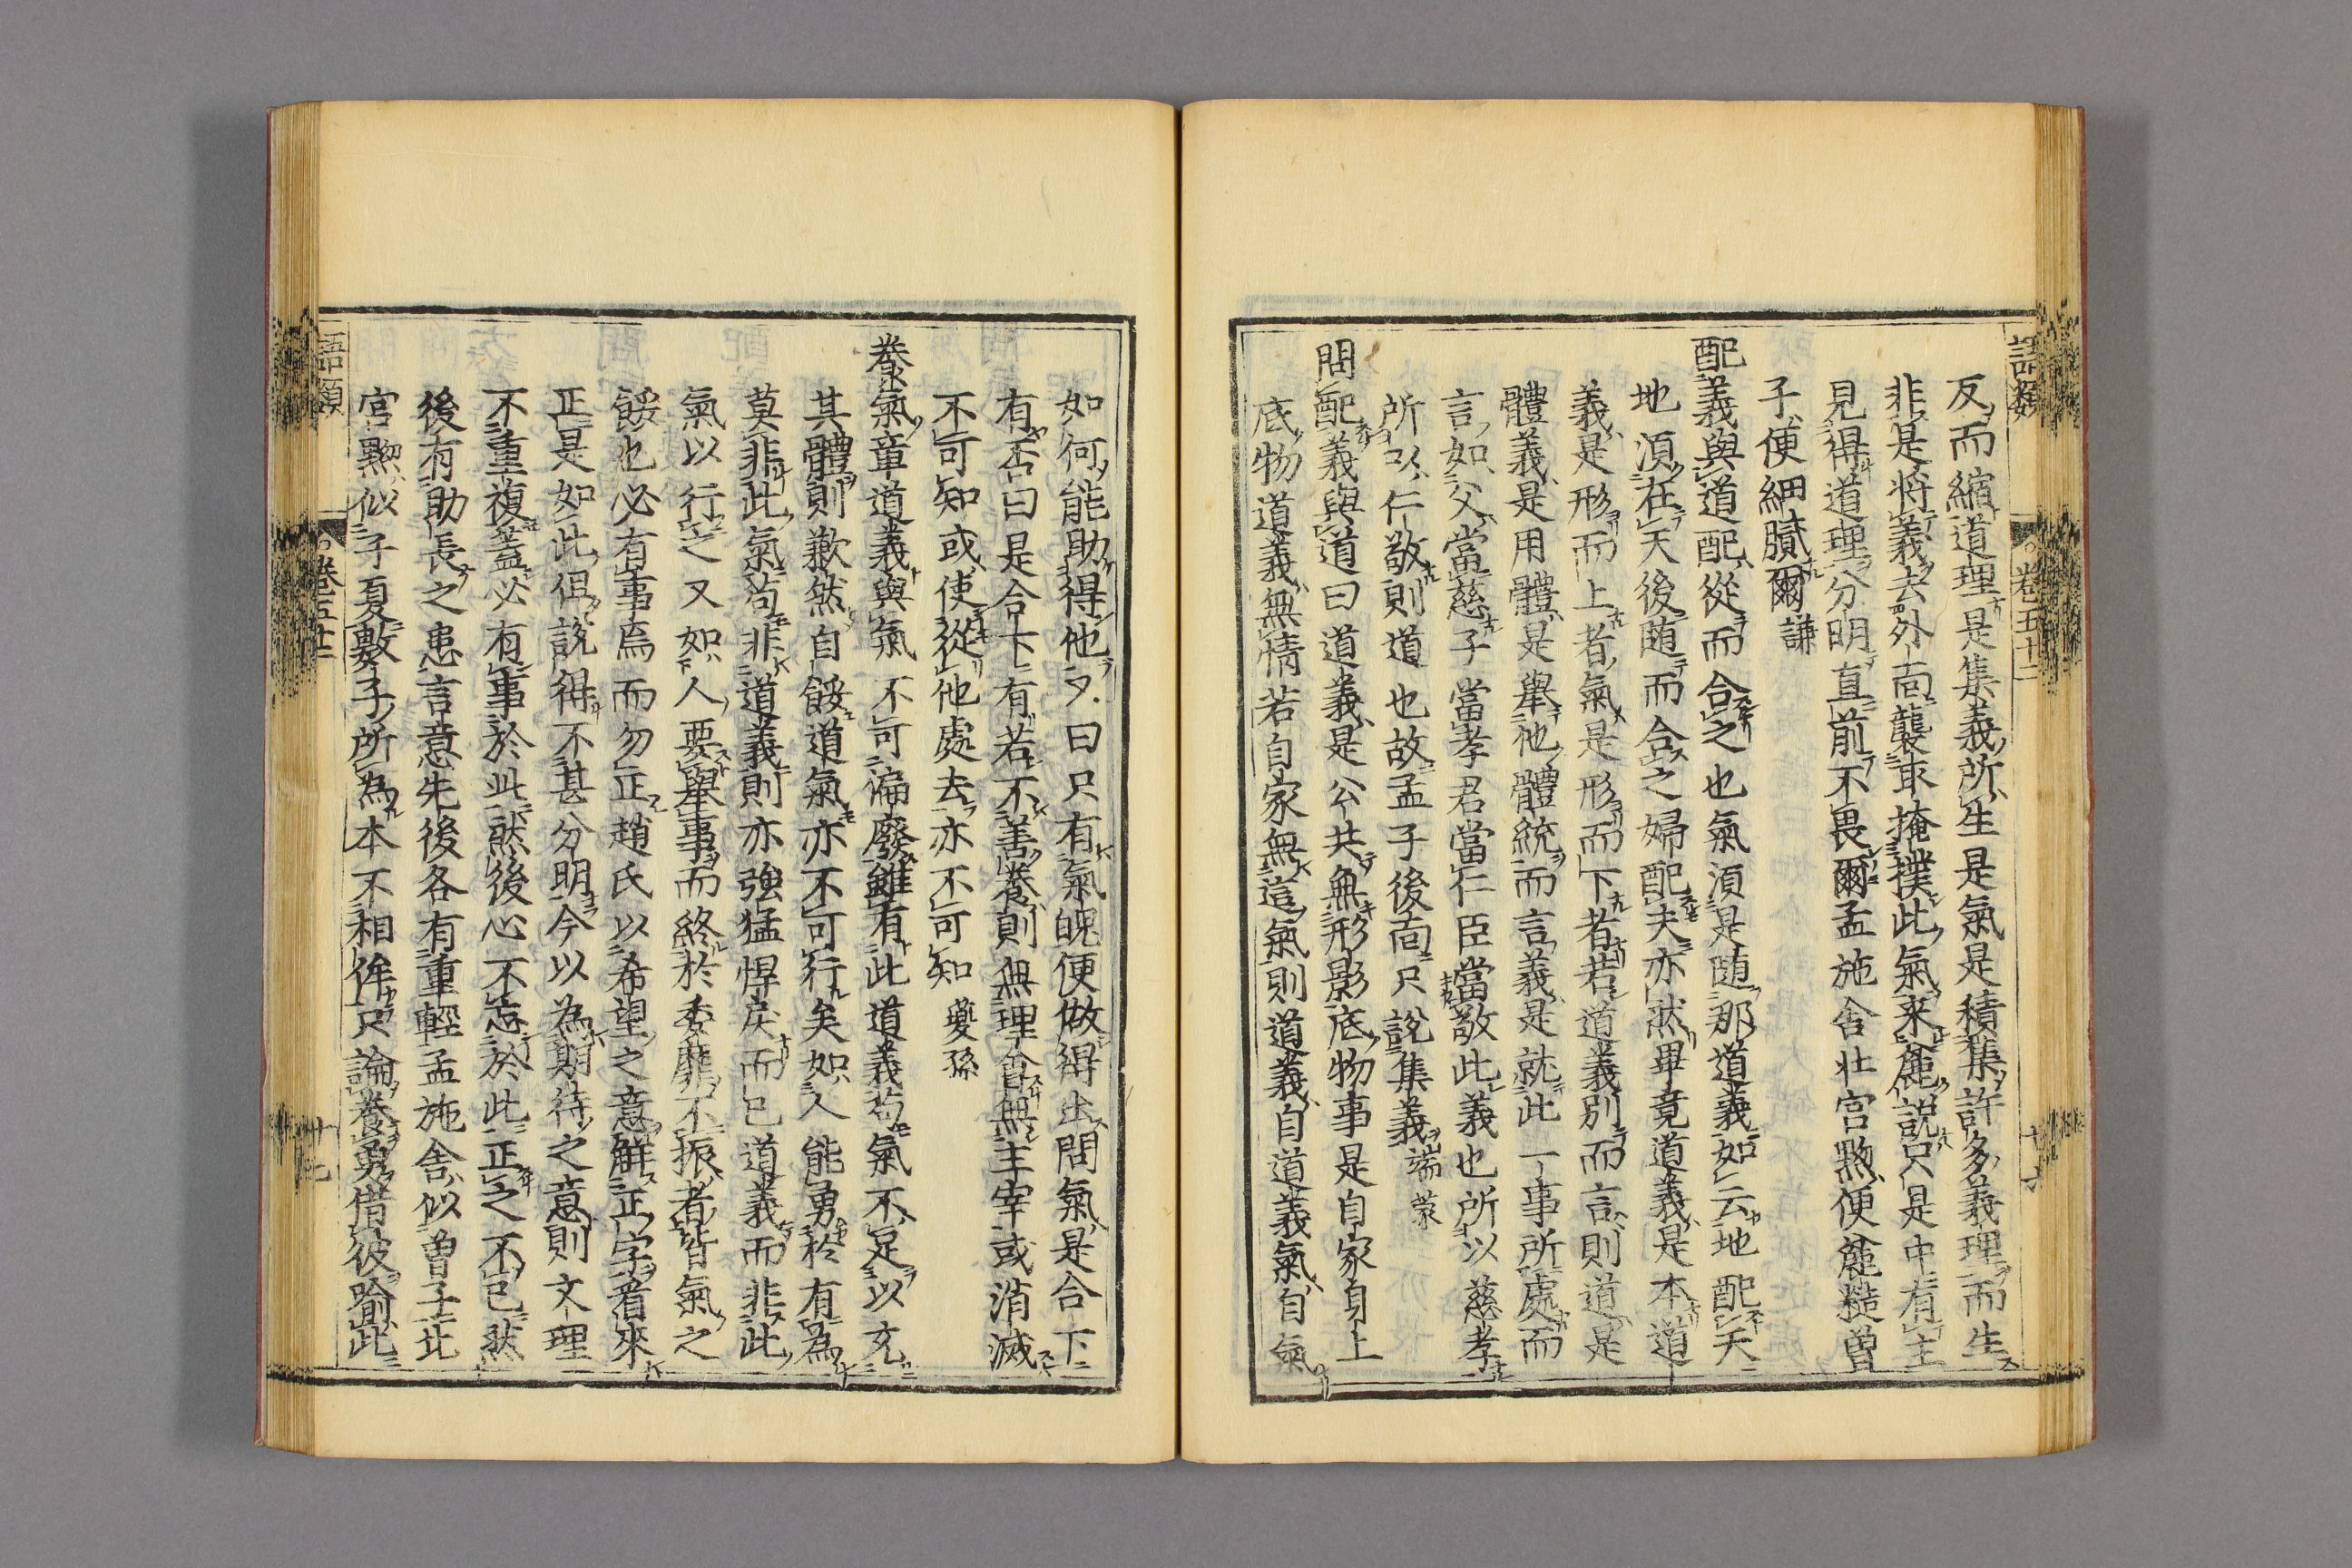 語類
卷五十二
十六
反而縮道理是集義所生是氣是積集許多義理而生
非是將義去外面襲取掩撲此氣來麄說只是中有主
見得道理分明直前不畏爾孟施舍北宮黝便麄糙曾
子便細膩爾謙
配義與道配從而合之也氣須是隨那道義如云地配天
地須在天後隨而合之婦配夫亦然畢竟道義是本道
義是形而上者氣是形而下者若道義別而言則道是
體義是用體是舉他體統而言義是就此一事所處而
言如父當慈子當孝君當仁臣當敬此義也所以慈孝
所以仁敬則道也故孟子後面只說集義端蒙
問配義與道曰道義是公共無形影底物事是自家身上
底物道義無情若自家無這氣則道義自道義氣自氣
如何能助得他又曰只有氣魄便做得出問氣是合下
有否曰是合下有若不善養則無理會無主宰或消滅
不可知或使從他處去亦不可知夔孫
養氣章道義與氣不可偏廢雖有此道義苟氣不足以充
其體則歉然自餒道氣亦不可行矣如人能勇於有為
莫非此氣苟非道義則亦強猛悍戾而已道義而非此
氣以行之又如人要舉事而終於委靡不振者皆氣之
餒也必有事焉而勿正趙氏以希望之意解正字看來
正是如此但說得不甚分明今以為期待之意則文理
不重複蓋必有事於此然後心不忘於此正之不已然
後有助長之患言意先後各有重輕孟施舍似曾子北
宮黝似子夏數子所為本不相侔只論養勇借彼喻此
語類
卷五十二
十七